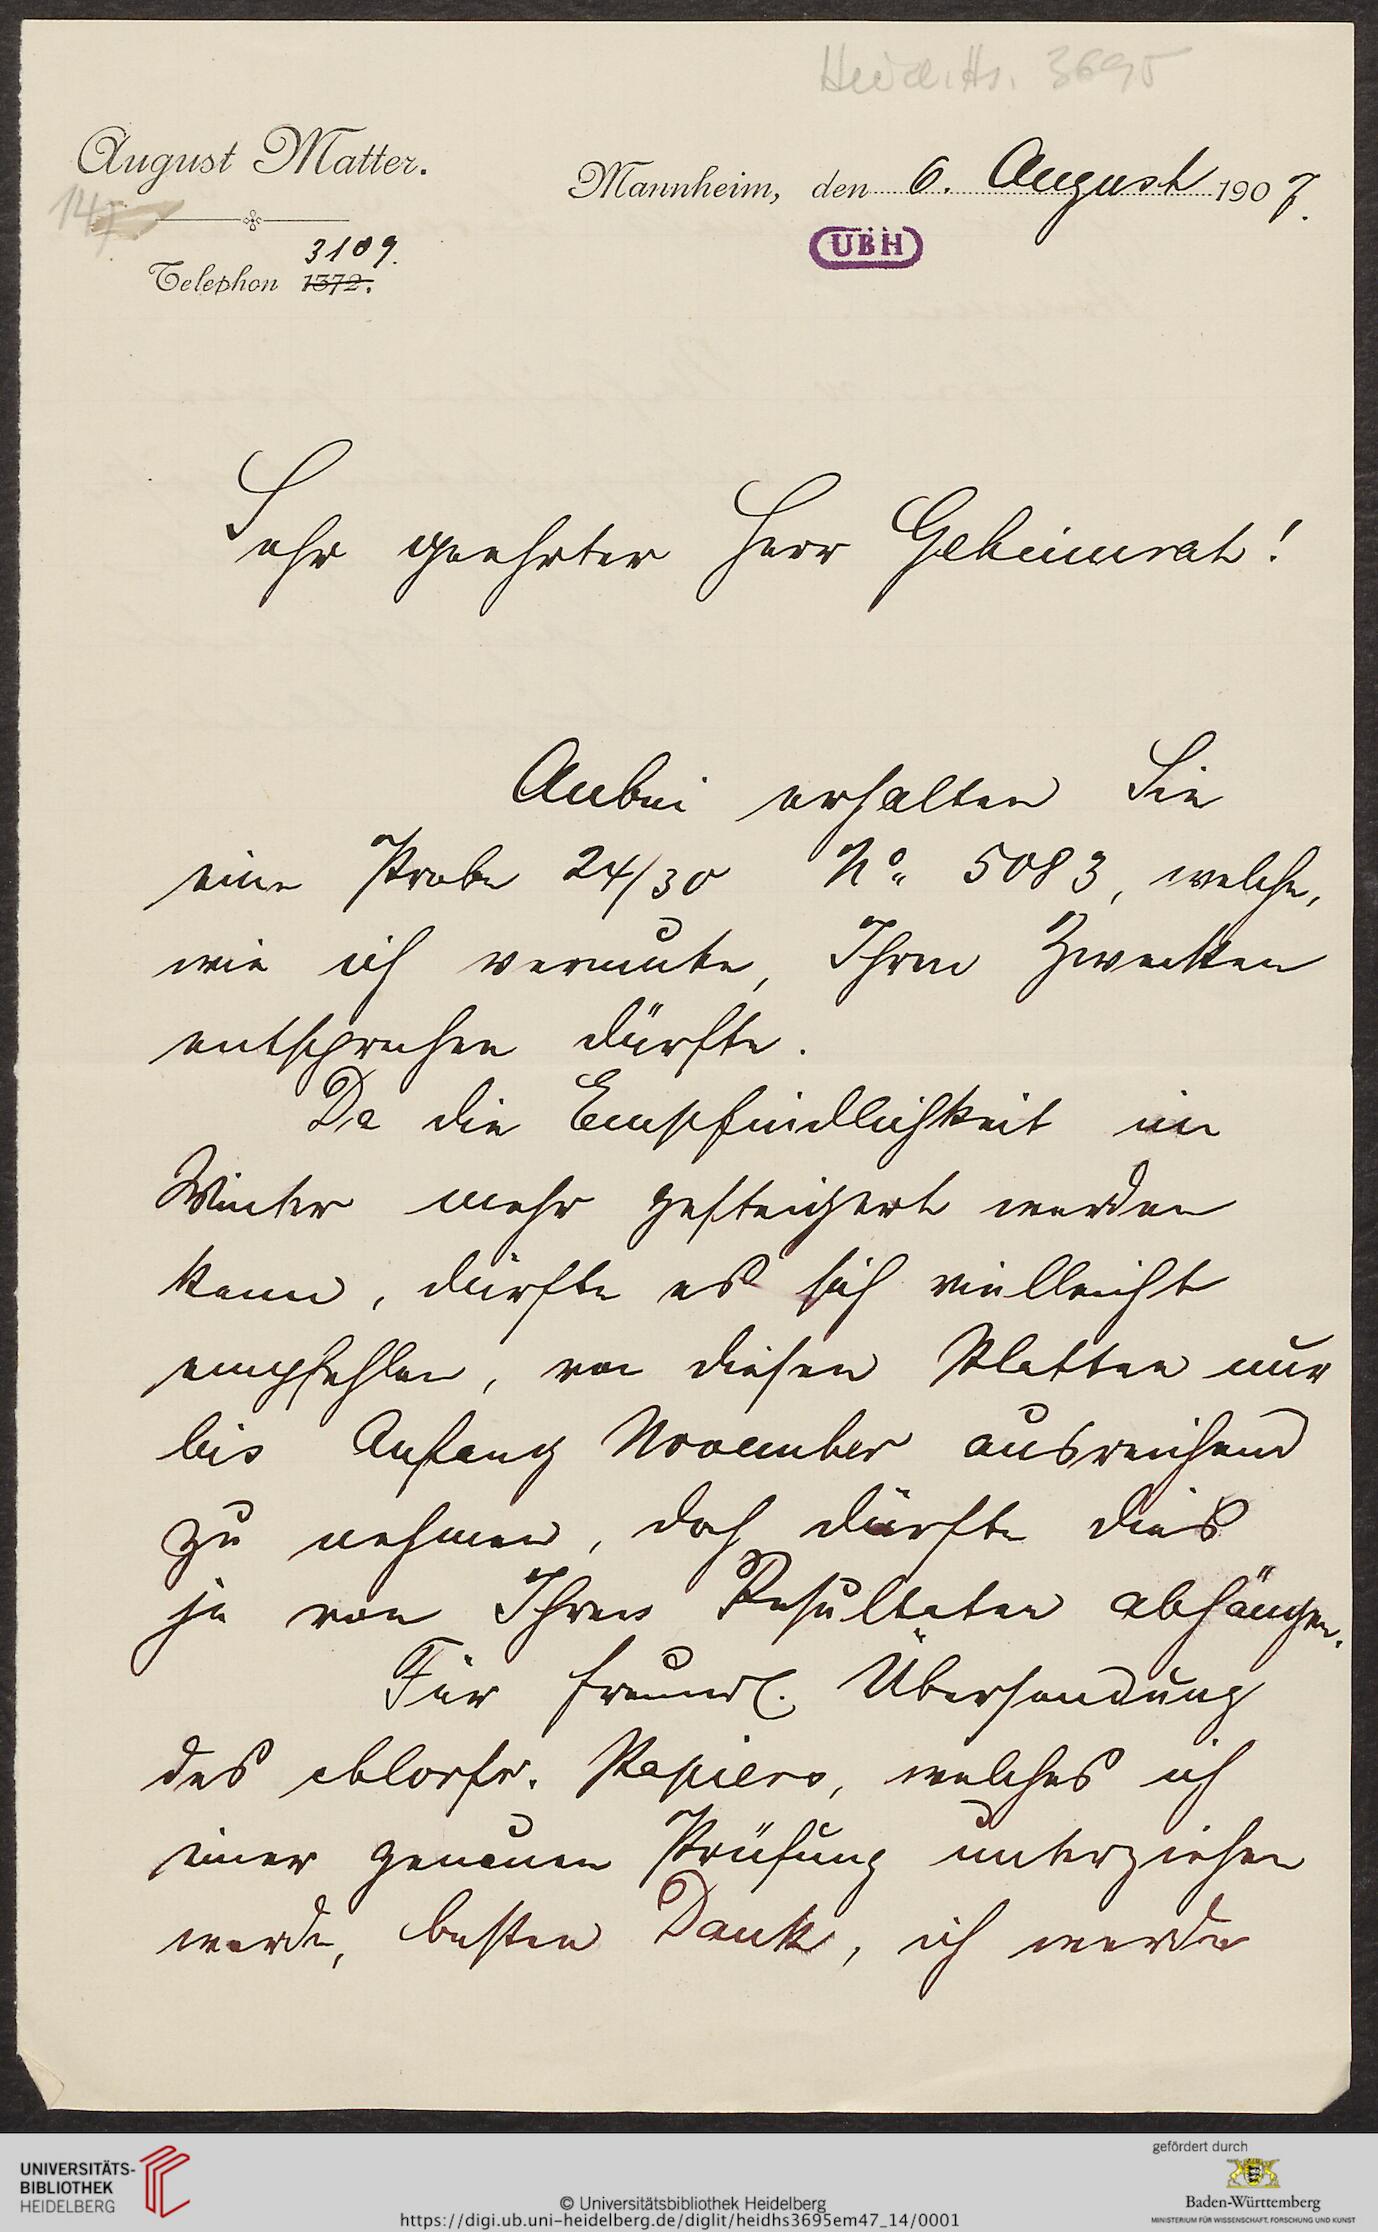 Heid. Hs. 3695
August Matter.
Mannheim, den 6. August 1907.
147
UBH
3109.
Telephon 1372.
Sehr geehrter Herr Geheimrat!
Anbei erhalten Sie
eine Probe 24/30 No. 5083, welche,
wie ich vermute, Ihren Zwecken
entsprechen dürfte.
Da die Empfindlichkeit im
Winter mehr gesteigert werden
kann, dürfte es sich vielleicht
empfehlen, von diesen Platten nur
bis Anfang November ausreichend
zu nehmen, doch dürfte dies
ja von Ihren Resultaten abhängen.
Für freundl. Übersendung
des chlorfr. Papiers, welches ich
einer genauen Prüfung unterziehen
werde, besten Dank, ich werde
UNIVERSITÄTS-
BIBLIOTHEK
HEIDELBERG
© Universitätsbibliothek Heidelberg
https://digi.ub.uni-heidelberg.de/diglit/heidhs3695em47_14/0001
gefördert durch
Baden-Württemberg
MINISTERIUM FÜR WISSENSCHAFT, FORSCHUNG UND KUNST